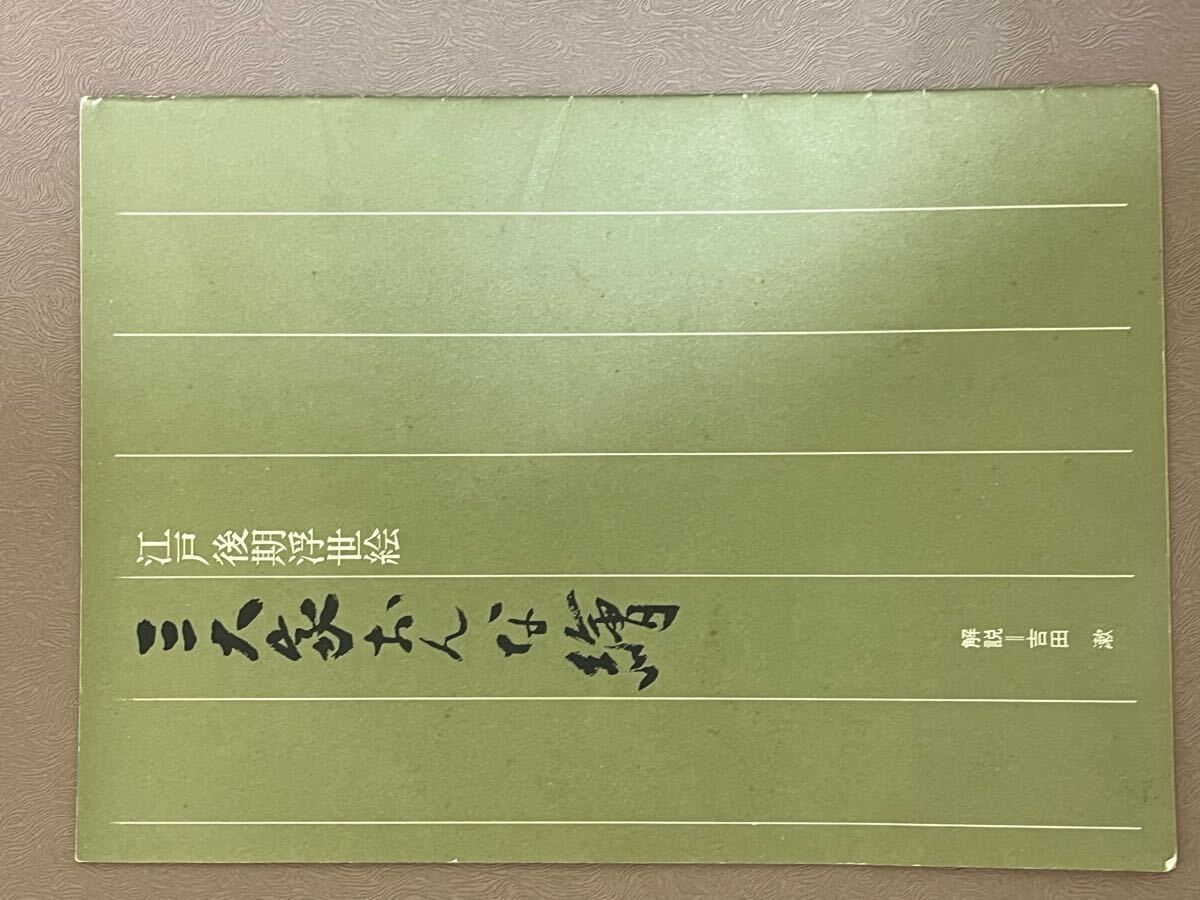 江戸後期浮世絵
三大家おんな繪
解説＝吉田 漱